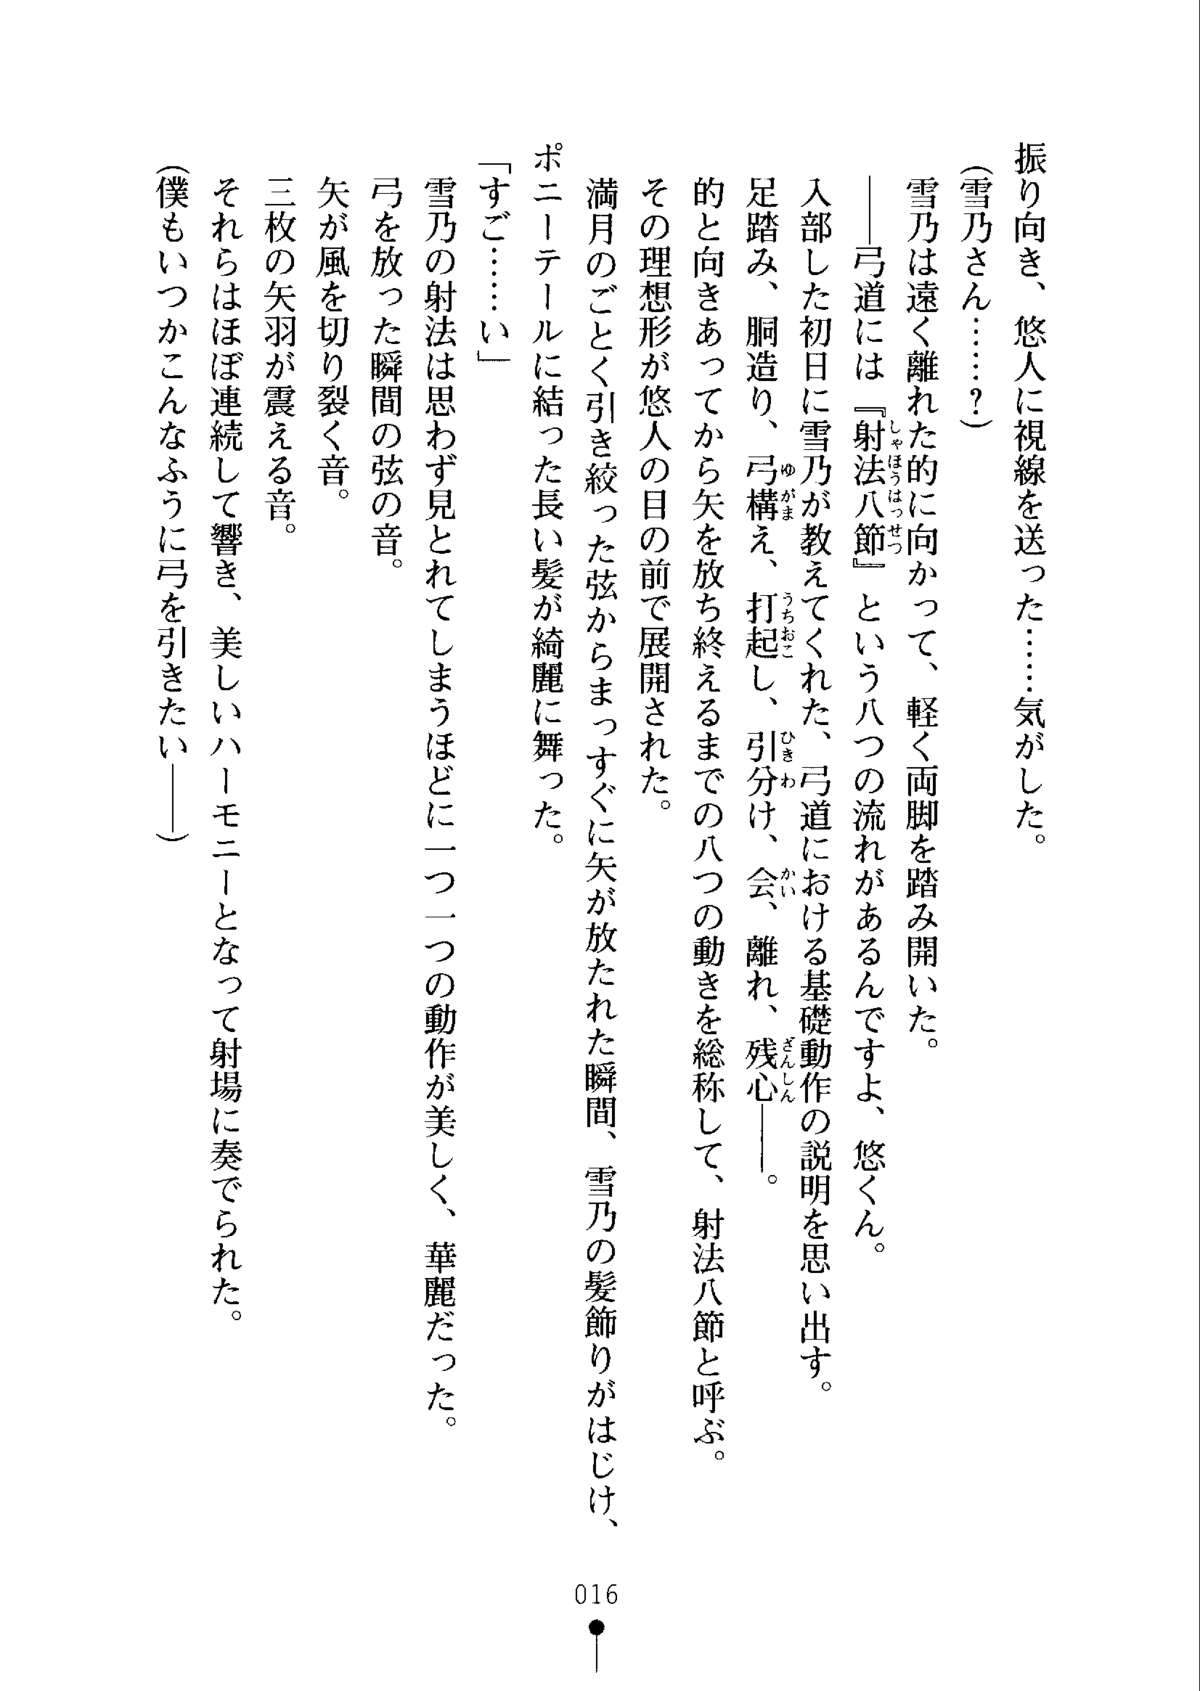 振り向き、悠人に視線を送った……気がした。
(雪乃さん……?)
雪乃は遠く離れた的に向かって、軽く両脚を踏み開いた。
――弓道には『射法八節』という八つの流れがあるんですよ、悠くん。
しゃほうはっせつ
入部した初日に雪乃が教えてくれた、弓道における基礎動作の説明を思い出す。
足踏み、胴造り、弓構え、打起し、引分け、会、離れ、残心――。
ゆがま
うちおこ
ひきわ
かい
ざんしん
的と向きあってから矢を放ち終えるまでの八つの動きを総称して、射法八節と呼ぶ。
その理想形が悠人の目の前で展開された。
満月のごとく引き絞った弦からまっすぐに矢が放たれた瞬間、雪乃の髪飾りがはじけ、
ポニーテールに結った長い髪が綺麗に舞った。
「すご……い」
雪乃の射法は思わず見とれてしまうほどに一つ一つの動作が美しく、華麗だった。
弓を放った瞬間の弦の音。
矢が風を切り裂く音。
三枚の矢羽が震える音。
それらはほぼ連続して響き、美しいハーモニーとなって射場に奏でられた。
(僕もいつかこんなふうに弓を引きたい――)
016